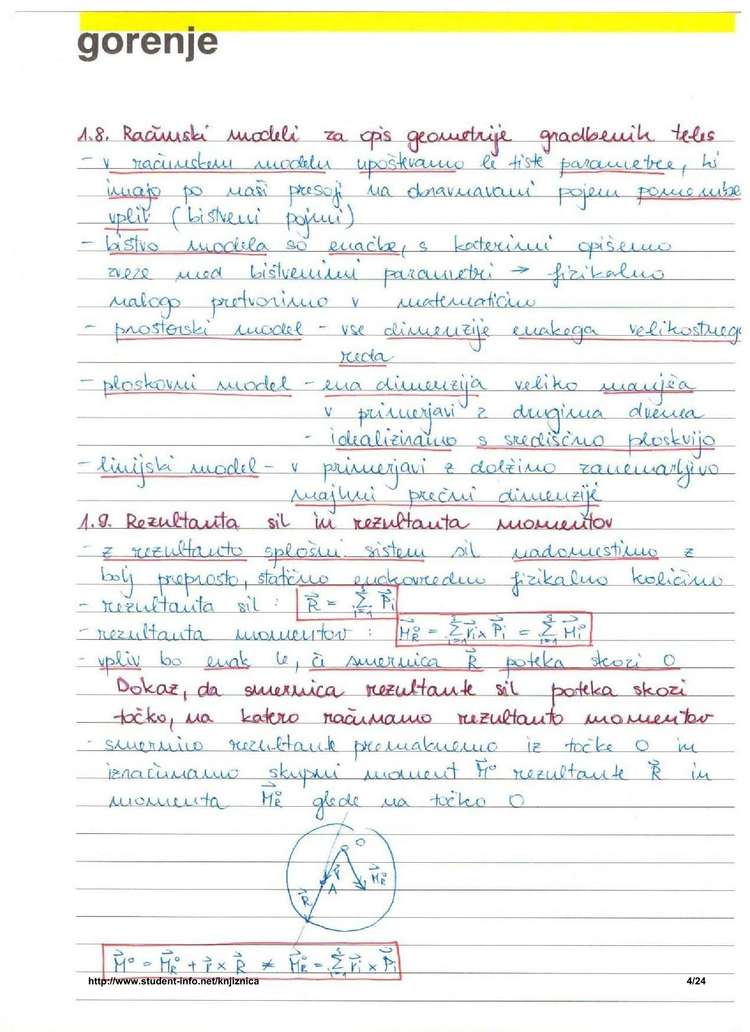 gorenje
1.8. Računski modeli za opis geometrije gradbenih teles
- v računskem modelu upoštevamo le tiste parametre, ki
imajo po naši presoji na obravnavani pojem pomembe
vpliv (bistveni pojmi)
- bistvo modela so enačbe, s katerimi opišemo
zveze med bistvenimi parametri → fizikalno
nalogo pretvorimo v matematično
- prostorski model - vse dimenzije enakega velikostnega
reda
- ploskovni model - ena dimenzija veliko manjša
v primerjavi z drugima dvema
- idealiziramo s središčno ploskvijo
- linijski model - v primerjavi z dolžino zanemarljivo
majhni prečni dimenziji
1.9. Rezultanta sil in rezultanta momentov
- z rezultanto splošni sistem sil nadomestimo z
bolj preprosto, statično enakovredno fizikalno količino
- rezultanta sil : R⃗ = Σ P⃗i
- rezultanta momentov : M⃗R° = Σ r⃗i x P⃗i = Σ M⃗i°
- vpliv bo enak le, či smernica R⃗ poteka skozi O
Dokaz, da smernica rezultante sil poteka skozi
točko, na katero računamo rezultanto momentov
- smernico rezultante premaknemo iz točke O in
izračunamo skupni moment M⃗° rezultante R⃗ in
momenta M⃗R° glede na točko O
O
r⃗ M⃗R°
A
R⃗
M⃗° = M⃗R° + r⃗ x R⃗ ≠ M⃗R° = Σ r⃗i x P⃗i
http://www.student-info.net/knjiznica 4/24